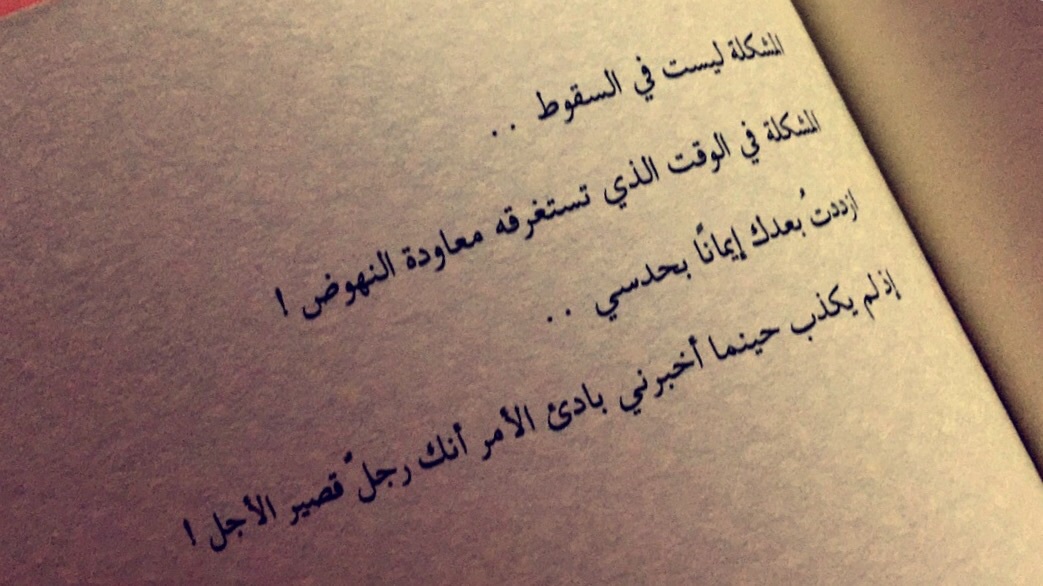 المشكلة ليست في السقوط . .
المشكلة في الوقت الذي تستغرقه معاودة النهوض !
ازددتُ بعدك إيمانًا بحدسي . .
إذ لم يكذب حينما أخبرني بادئ الأمر أنك رجلٌ قصير الأجل !